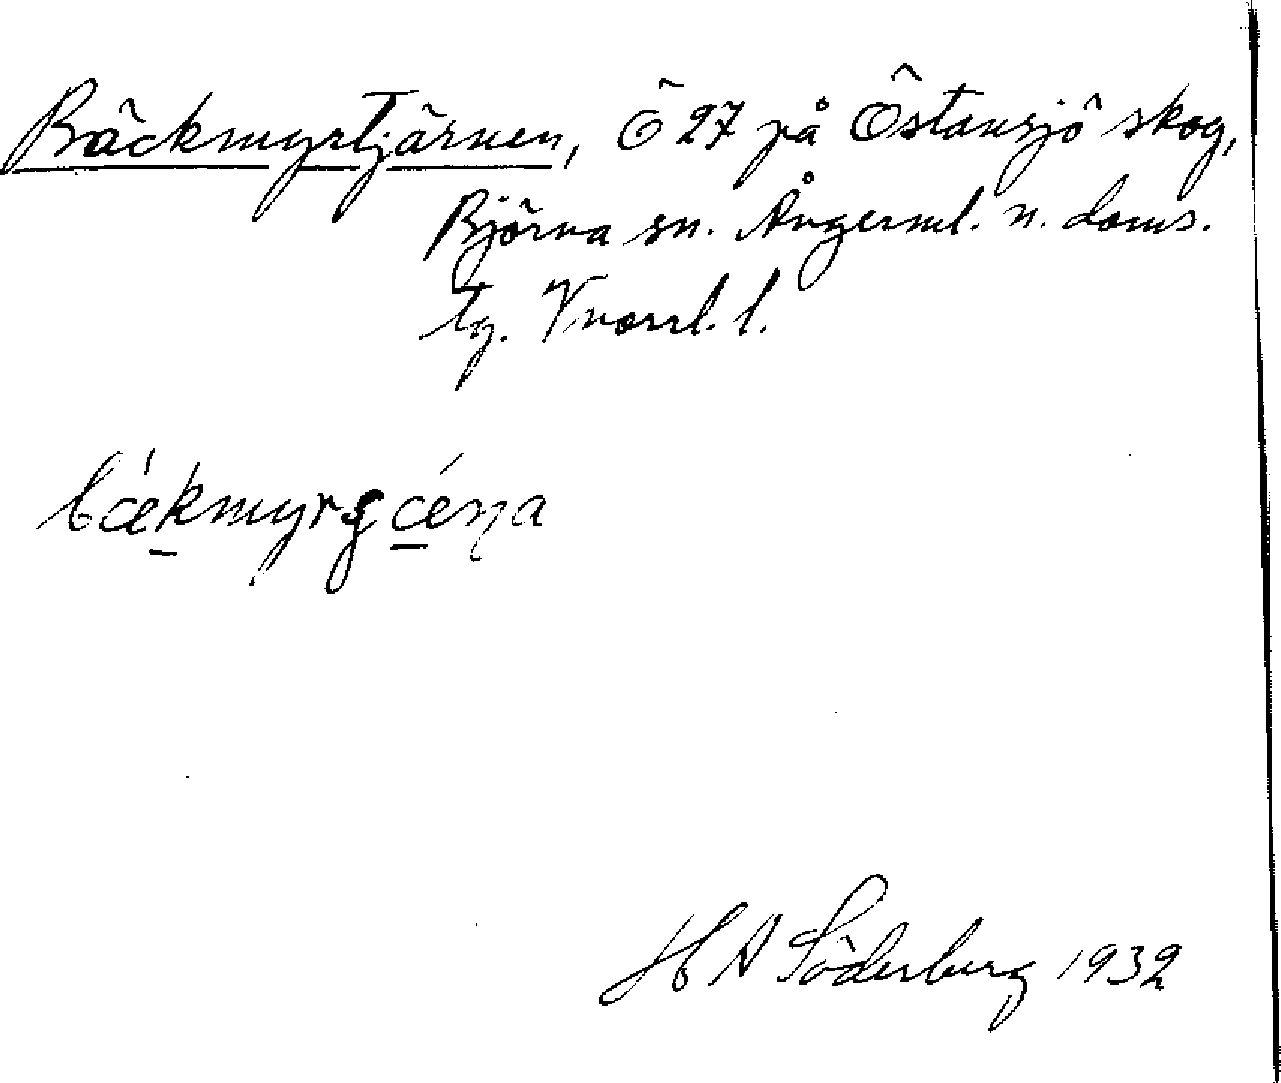 Bäckmyrtjärnen, Ö 27 på Östansjö skog,
Björna sn. Ångerml. n. doms.
tg. Vnorrl. l.
bǽkmyrʂǽɳa
H A Söderberg 1932